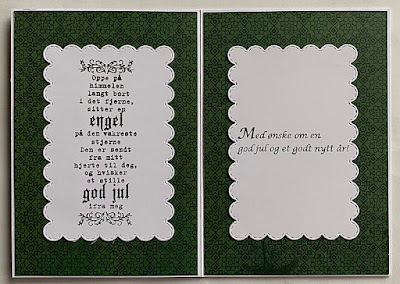 Oppe på
himmelen
langt bort
i det fjerne,
sitter en
engel
på den vakreste
stjerne
Den er sendt
fra mitt
hjerte til deg,
og hvisker
et stille
god jul
ifra meg
Med ønske om en
god jul og et godt nytt år!